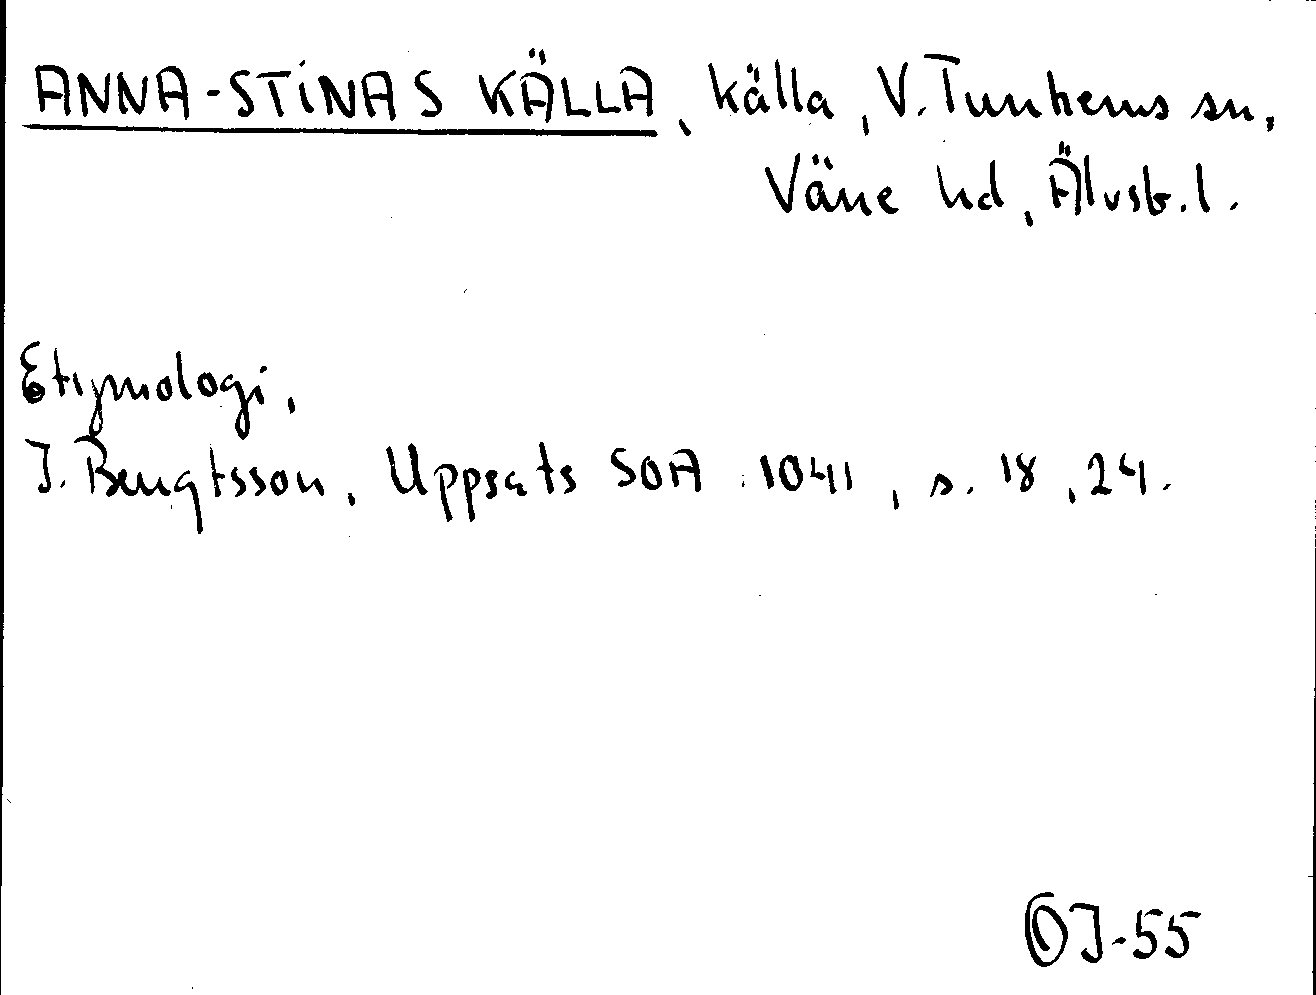 ANNA-STINAS KÄLLA, källa, V. Tunhems sn,
Väne hd, Älvsb. l.
Etymologi,
J. Bengtsson, Uppsats SOA 1041, s. 18, 24.
OJ-55